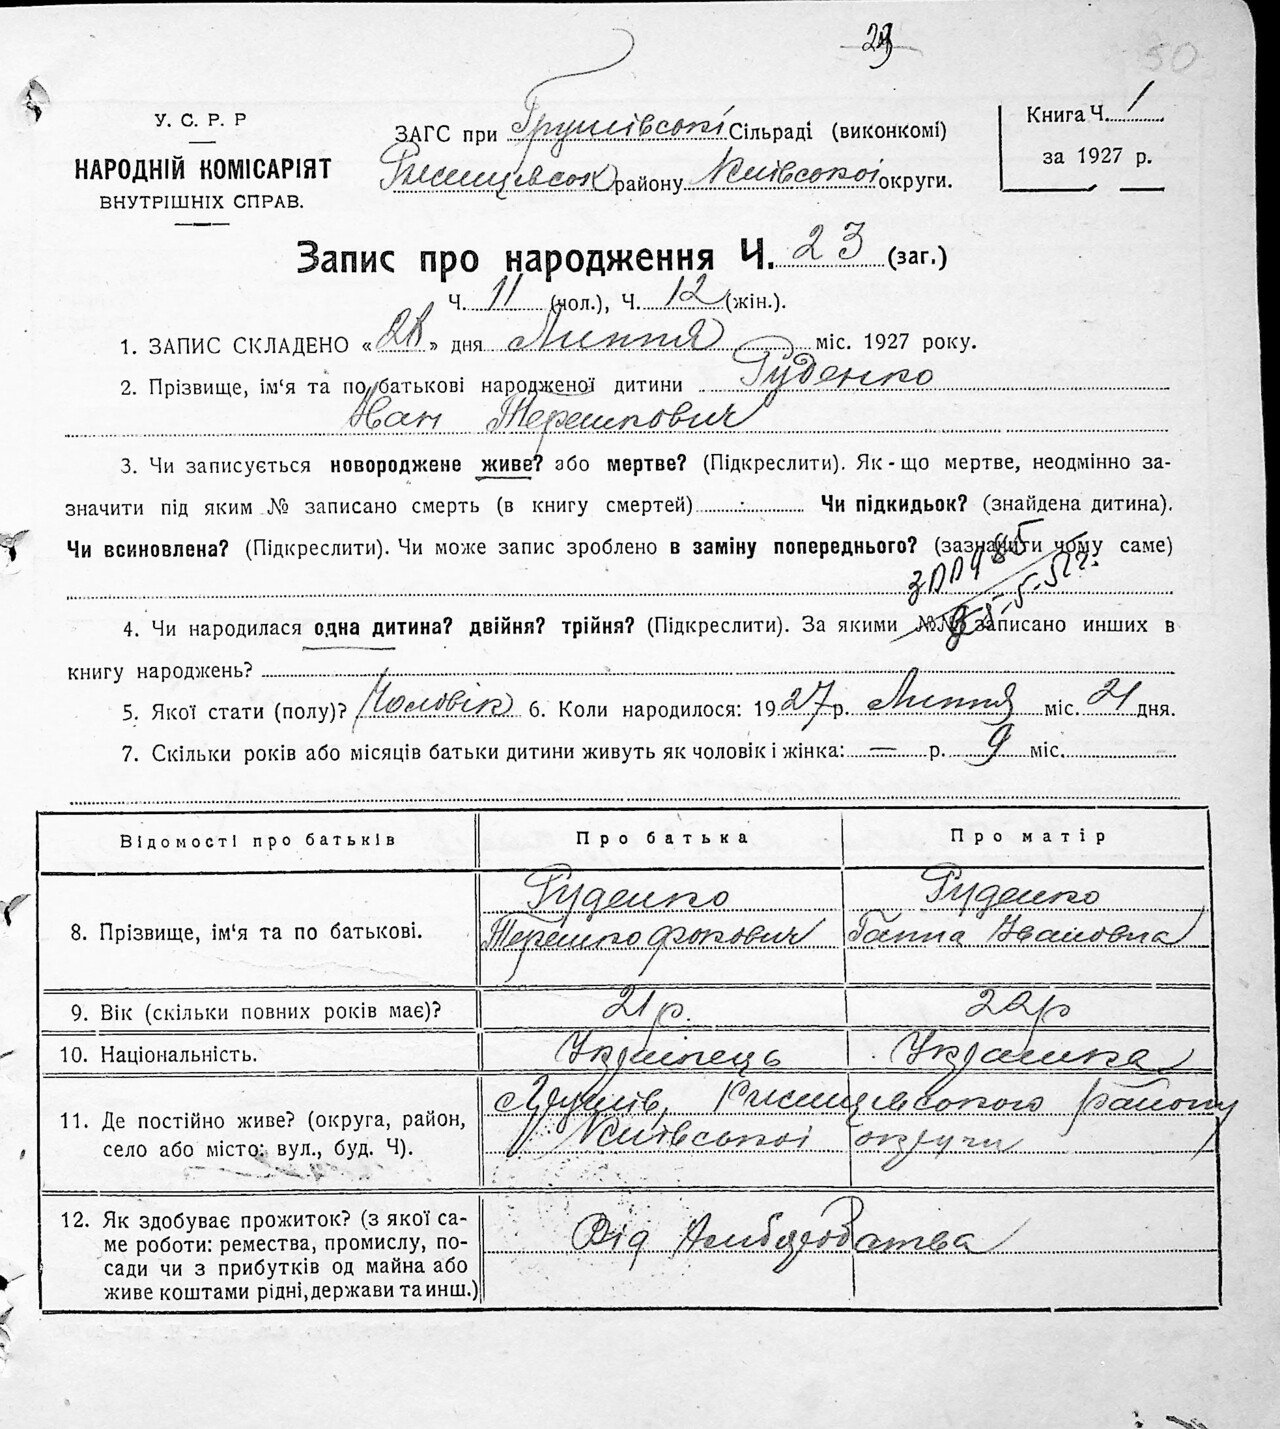 23
50
У. С. Р. Р
НАРОДНІЙ КОМІСАРІЯТ
ВНУТРІШНІХ СПРАВ.
ЗАГС при Грушівські Сільраді (виконкомі)
Ржищевськ району Київської округи.
Книга Ч. 1
за 1927 р.
Запис про народження Ч. 23 (заг.)
Ч. 11 (чол.), Ч. 12 (жін.).
1. ЗАПИС СКЛАДЕНО « » дня Липня міс. 1927 року.
2. Прізвище, ім‘я та по батькові народженої дитини Руденко
Іван Терешкович
3. Чи записується новороджене живе? або мертве? (Підкреслити). Як-що мертве, неодмінно за-
значити під яким № записано смерть (в книгу смертей) Чи підкидьок? (знайдена дитина).
Чи всиновлена? (Підкреслити). Чи може запис зроблено в заміну попереднього? (зазначити чому саме)
4. Чи народилася одна дитина? двійня? трійня? (Підкреслити). За якими №№ записано инших в
книгу народжень?
5. Якої стати (полу)? Чоловік 6. Коли народилося: 1927 р. Липня міс. 21 дня.
7. Скільки років або місяців батьки дитини живуть як чоловік і жінка: — р. 9 міс.
Відомості про батьків Про батька Про матір
8. Прізвище, ім‘я та по батькові. Руденко Терешко Фокович Руденко Ганна Івановна
9. Вік (скільки повних років має)? 21 р. 22 р
10. Національність. Українець Українка
11. Де постійно живе? (округа, район,
село або місто: вул., буд. Ч).
с Грушів, Ржищевського району
Київської округи
12. Як здобуває прожиток? (з якої са-
ме роботи: ремества, промислу, по-
сади чи з прибутків од майна або
живе коштами рідні, держави та инш.)
Від Хліборобства